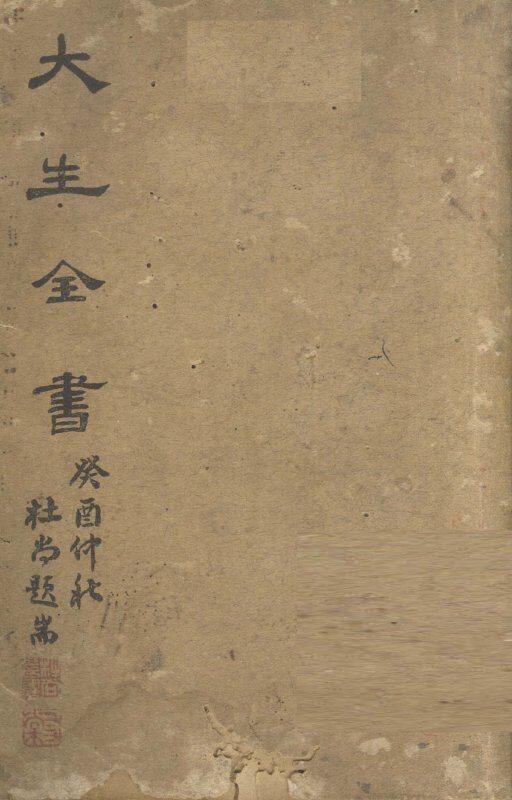 大生全書
癸酉仲秋
杜尚題耑